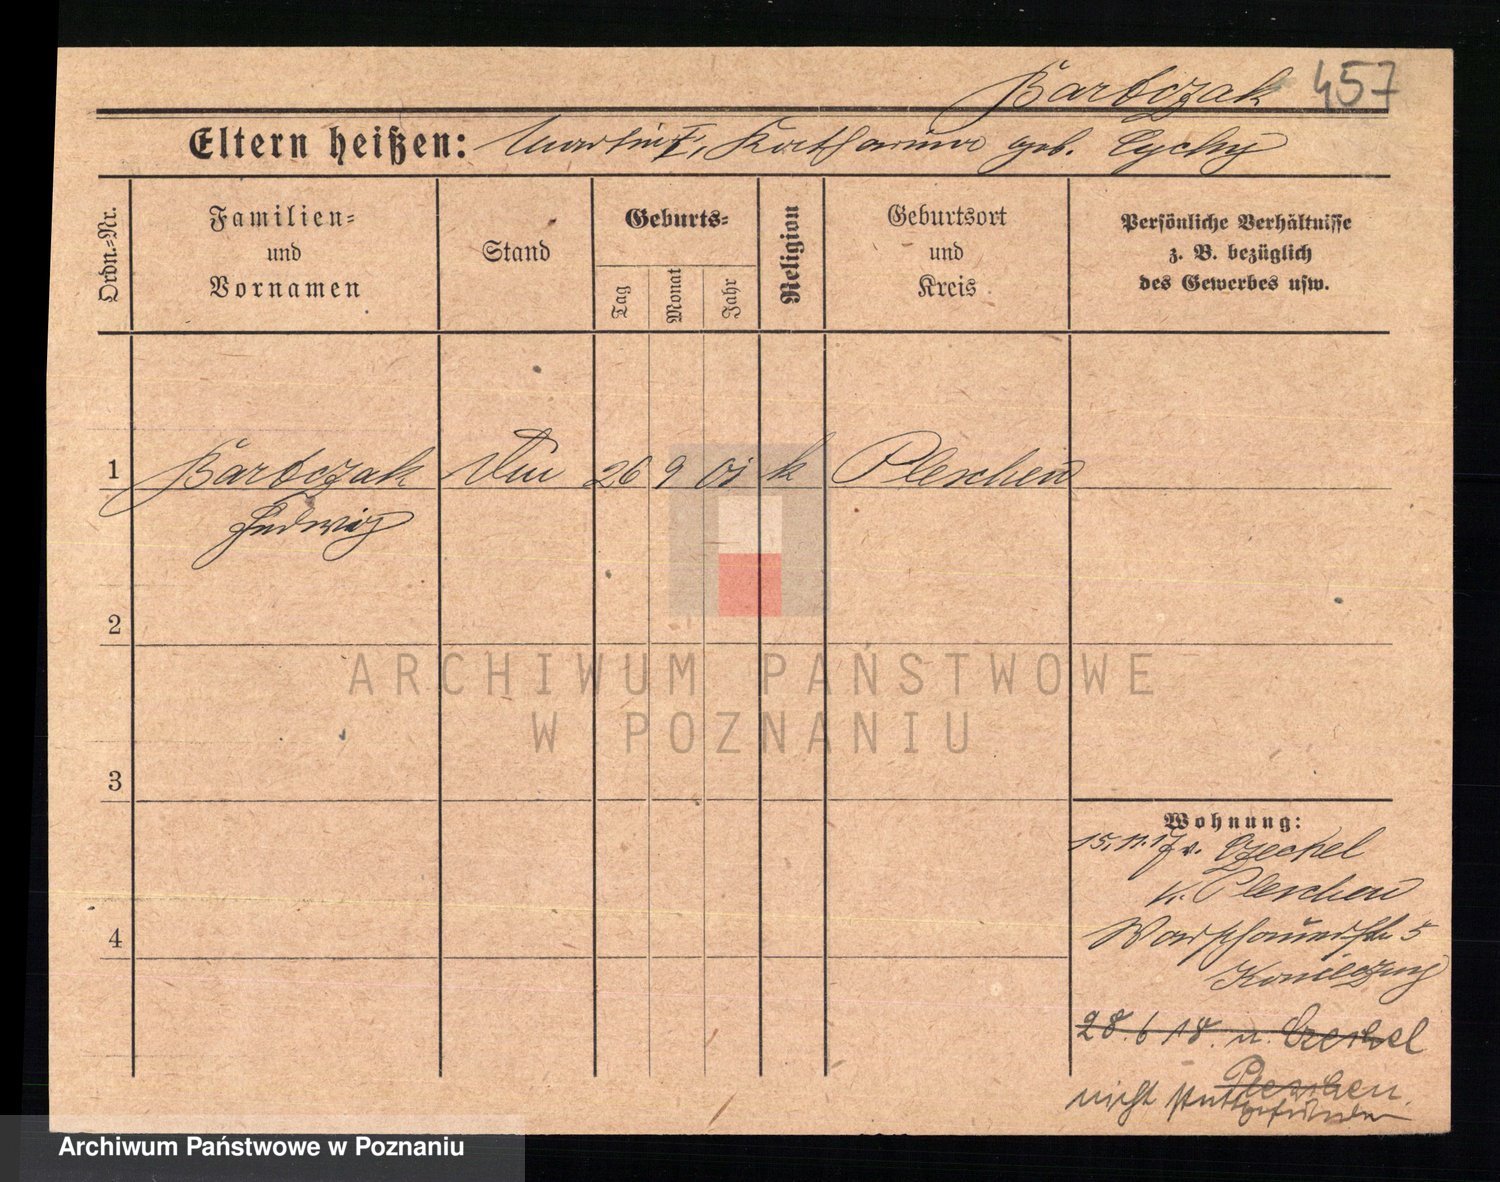 Bartczak 457
Eltern heißen: Martin, Katharina geb. Cychy
Ordn.=Nr.
Familien=
und
Vornamen
Stand
Geburts=
Tag
Monat
Jahr
Religion
Geburtsort
und
Kreis
Persönliche Verhältnisse
z. B. bezüglich
des Gewerbes usw.
1 Bartczak 26 9 k Pleschen
Ludwig
2
ARCHIWUM PAŃSTWOWE
W POZNANIU
3
Wohnung:
15.11.17 v. Czechel
K. Pleschen
4
Warschauerstr 5
28.6.18. n. Czechel
Pleschen.
nicht stattgefunden
Archiwum Państwowe w Poznaniu